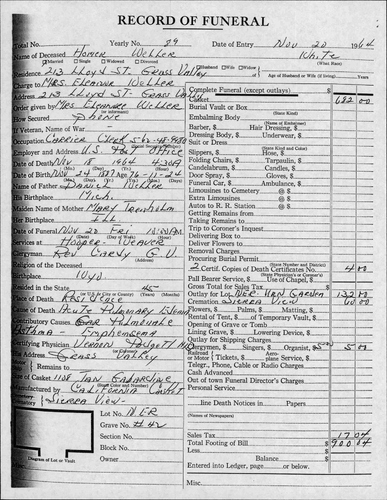 RECORD OF FUNERAL
Total No. Yearly No. 89 Date of Entry Nov 20 1964
Name of Deceased Homer Weller White
Married Single Widowed Divorced Husband Wife Widow
Residence 213 Lloyd St. Grass Valley Age of Husband or Wife (if living) Years
Mrs. Eleanor Weller
213 Lloyd St Grass Valley
Order given by Mrs Eleanore Weller
How Secured Phone
If Veteran, Name of War
Occupation Carrier Clerk
Employer and Address U.S. Office
Date of Death Nov 18 1964 4:30A
Date of Birth Nov 24 1887 76-11-24
Name of Father Daniel Weller
His Birthplace Mich.
Maiden Name of Mother Mary Trenholm
Her Birthplace Ill
Date of Funeral Nov 20 Fri 10:00AM
Services at Hooper-Weaver
Clergyman Rev Candy G.V.
Religion of the Deceased
Birthplace Wyo.
Resided in the State 45
Place of Death Residence
Cause of Death Acute Pulmonary Edema
Contributory Causes Cor Pulmonale
Asthma Emphysema
Certifying Physician Vernon Padgett MD
His Address Grass Valley
Motor Remains to
of Casket 1108 Tan
Manufactured by California Casket
Sierra View
Lot No. NER
Grave No. #42
Section No.
Block No.
Owner
Diagram of Lot or Vault
Complete Funeral (except outlays) $
Casket 682.00
Burial Vault or Box
Embalming Body
(Name of Embalmer)
Barber, $ Hair Dressing, $
Dressing Body, $ Underwear, $
Suit or Dress
Slippers, $ Hose, $
Folding Chairs, $ Tarpaulin, $
Candelabrum, $ Candles, $
Door Spray, $ Gloves, $
Funeral Car, $ Ambulance, $
Limousines to Cemetery @ $
Extra Limousines @ $
Autos to R. R. Station @ $
Getting Remains from
Taking Remains to
Trip to Coroner's Inquest
Delivering Box to
Deliver Flowers to
Removal Charges
Procuring Burial Permit
2 Certif. Copies of Death Certificates No. 4.00
Pall Bearer Service, $ Use of Chapel, $
Gross Total for Sales Tax $
Outlay for Lot NER Tan Garden 132.00
Cremation Sierra View 60.00
Flowers, $ Palms, $ Matting, $
Rental of Tent, $ of Temporary Vault, $
Opening of Grave or Tomb
Lining Grave, $ Lowering Device, $
Outlay for Shipping Charges
Clergymen, $ Singers, $ Organist, $ 5.00
Telegr., Phone, Cable or Radio Charges
Cash Advanced
Out of town Funeral Director's Charges
Personal Service
line Death Notices in Papers
(Names of Newspapers)
Sales Tax 17.04
Total Footing of Bill $ 900.04
Less $
Balance $
Entered into Ledger, page or below.
Misc.